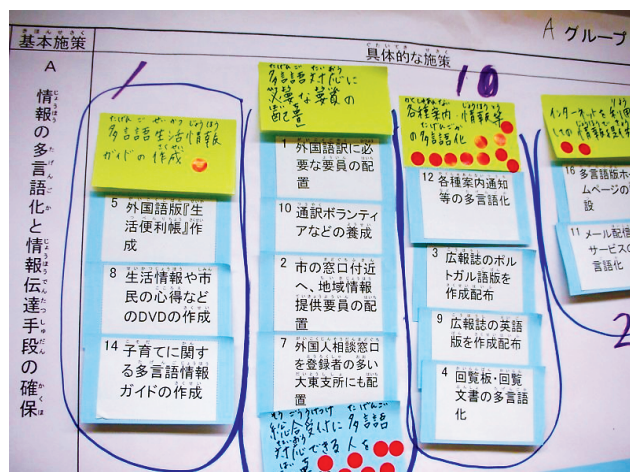 基本施策
具体的な施策
A グループ
A
情報の多言語化と情報伝達手段の確保
1
多言語生活情報
ガイドの作成
5 外国語版『生
活便利帳』作
成
8 生活情報や市
民の心得など
のDVDの作成
14 子育てに関す
る多言語情報
ガイドの作成
多言語対応に
必要な
配置
1 外国語訳に必
要な要員の配
置
10 通訳ボランティ
アなどの養成
2 市の窓口付近
へ、地域情報
提供要員の配
置
7 外国人相談窓口
を登録者の多い
大東支所にも配
置
総合受付に多言語
対応できる人を
10
各種案内・情報等
の多言語化
12 各種案内通知
等の多言語化
3 広報誌のポル
トガル語版を
作成配布
9 広報誌の英語
版を作成配布
4 回覧板・回覧
文書の多言語
化
インターネットを利用
しての情報提供
16 多言語版ホ
ムページの
設
11 メール配信
サービスの
言語化
2